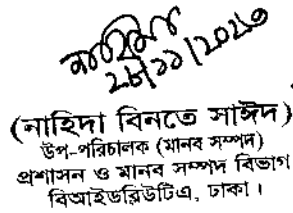 নাহিদা
২৮/১১/২০২৩
(নাহিদা বিনতে সাঈদ)
উপ-পরিচালক (মানব সম্পদ)
প্রশাসন ও মানব সম্পদ বিভাগ
বিআইডব্লিউটিএ, ঢাকা।